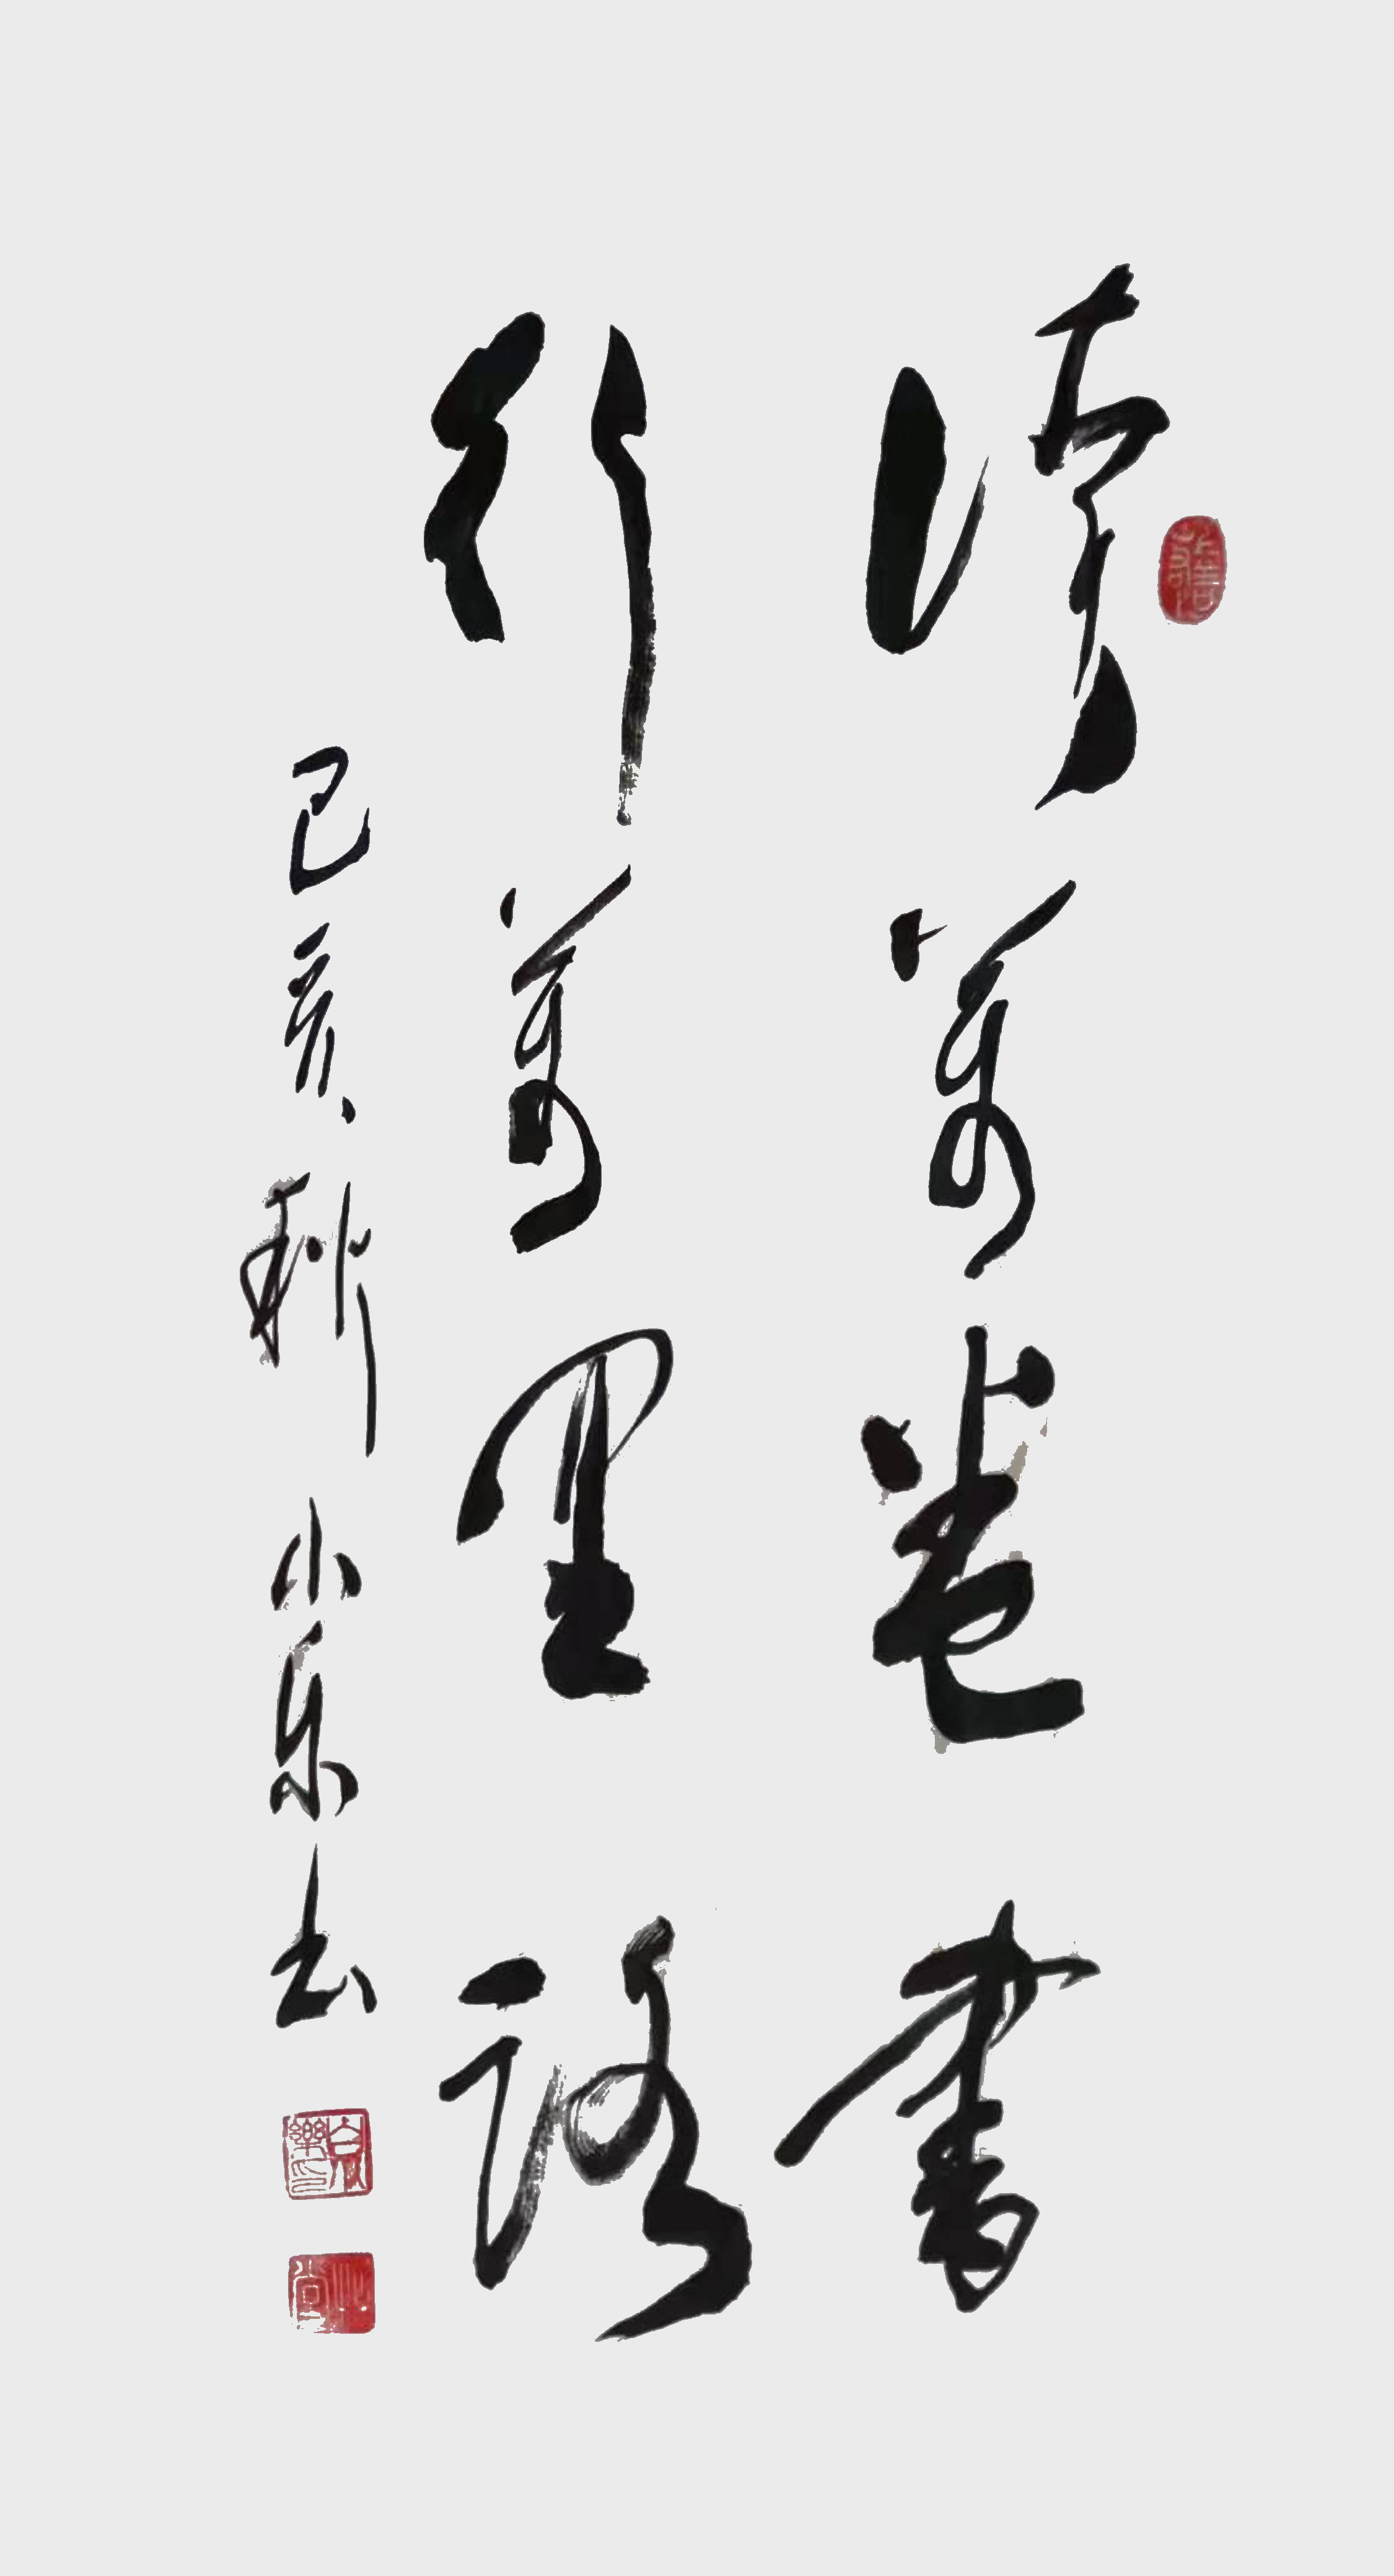 讀萬卷書
行萬里路
己亥秋小乐书